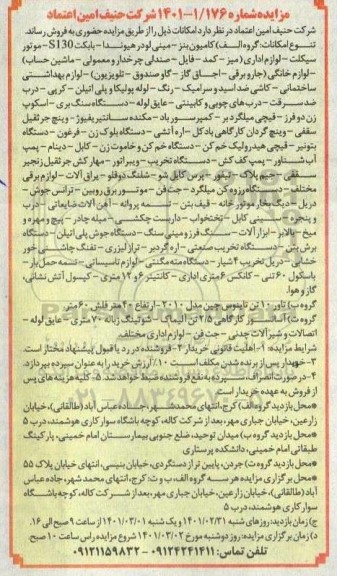 مزایده شماره ۱/۱۷۶-۱۴۰۱ شرکت حنیف امین اعتماد
شرکت حنیف امین اعتماد در نظر دارد امکانات ذیل را از طریق مزایده حضوری به فروش رساند.
تنوع امکانات: گروه الف) کامیون بنز - مینی لودر هیوندا - بابکت S130 - موتور
سیکلت - لوازم اداری (میز - کمد - فایل - صندلی چرخدار و معمولی - ماشین حساب)
- لوازم خانگی (جاروبرقی - اجاق گاز - گاوصندوق - تلویزیون) - لوازم بهداشتی
ساختمانی - کاشی ضد اسید و سرامیک - رنگ - لوله پولیکا و پلی اتیلن - کرپی - باند
ضد سرقت - درب های چوبی و کابینتی - عایق لوله - دستگاه سنگ بری - اسکوپ
زن دو فرز - قیچی میلگردبر - کمپرسور باد - مکنده سانتریفیوژ - وینچ جرثقیل
سقفی - وینچ گردان کارگاهی یا دکل - اره آتشی - دستگاه بلوک زن - فرغون - دستگاه
بتونیر - قیچی هیدرولیک خم کن - دستگاه خم کن و خاموت زن - کابل - دینام - پمپ
آب شناور - پمپ کف کش - دستگاه تخریب - ویبراتور - مهارکش جرثقیل زنجیر
مختلف - دستگاه رزوه کن میلگرد - جت فن - موتور برق روبین - ترانس جوش -
دریل - دیگ بخار موتورخانه - قیف بتن - تسمه پروانه - آهن آلات ضایعاتی - درب
و پنجره - سینی کابل - تختخواب - داربست چکشی - مبله چادر - پیچ و مهره و
میخ - بالابر - ابزارآلات - سنگ فرز و مینی سنگ - دستگاه جوش پلی اتیلن - دستگاه
برش بتن - دستگاه تخریب صنعتی - اره گردبر - تراز لیزری - تفنگ چاشنی خور
خشاب - دریل تخریب ۴ شیار - دستگاه مته مگنتی - لوازم تاسیساتی - تسمه حمل بار -
باسکول ۶۰ تنی - کانکس ۶ متری اداری - کانتینر ۶ و ۱۲ متری - کپسول آتش نشانی،
گاز و هوا.
گروه ب) تاور ۱۰ تن تایتوس چین مدل ۲۰۱۰ - ارتفاع ۴۰ متر فلش ۶۰ متر
اتصالات و شیرآلات چدنی - جت فن - لوازم اداری مختلف
شرایط مزایده: ۱- اهلیت قانونی خریدار ۲- فروشنده در رد یا قبول پیشنهاد مختار است.
۳- خریدار پس از برنده شدن مکلف است ۱۰٪ ارزش خرید را به عنوان سپرده بپردازد.
۴- در صورت انصراف، سپرده به نفع فروشنده ضبط خواهد شد. ۵- کلیه هزینه های پس
از فروش به عهده خریدار است
•محل بازدید گروه الف) کرج، انتهای محمدشهر، جاده عباس آباد (طالقانی)، خیابان
زارعین، خیابان جباری مهر، بعد از شرکت کاله، کوچه باشگاه سوارکاری هوشمند، درب ۵
•محل بازدید گروه ب) میدان توحید، ضلع جنوبی بیمارستان امام خمینی، پارکینگ
طبقاتی امام خمینی، دانشکده پرستاری
•محل بازدید گروه ت) جردن، پایین تر از دستگردی، خیابان بنیسی، انتهای خیابان پلاک ۵۵
•محل برگزاری مزایده هر سه گروه الف، ب و ت: کرج، انتهای محمد شهر، جاده عباس
آباد (طالقانی)، خیابان زارعین، خیابان جباری مهر، بعد از شرکت کاله، کوچه باشگاه
سوارکاری هوشمند، درب ۵
ج) زمان بازدید: روزهای شنبه ۱۴۰۱/۰۲/۳۱ و یک شنبه ۱۴۰۱/۰۳/۰۱ از ساعت ۹ صبح الی ۱۶.
د) زمان برگزاری مزایده: روز دوشنبه مورخ ۱۴۰۱/۰۳/۰۲ شروع مزایده راس ساعت ۱۰ صبح
تلفن تماس: ۰۹۱۲۴۲۴۱۴۱۱ - ۰۹۱۲۱۱۵۹۸۳۲